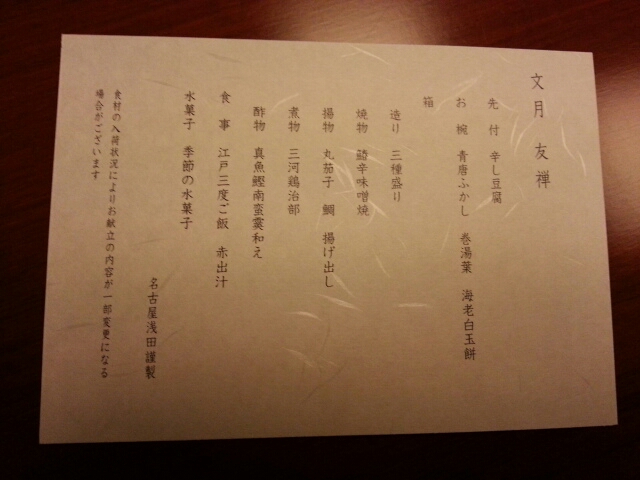 文月 友禅
先付 辛し豆腐
お椀 青唐ふかし 巻湯葉 海老白玉餅
箱
造り 三種盛り
焼物 鱸辛味噌焼
揚物 丸茄子 鯛 揚げ出し
煮物 三河鶏治部
酢物 真魚鰹南蛮霙和え
食事 江戸三度ご飯 赤出汁
水菓子 季節の水菓子
名古屋浅田謹製
食材の入荷状況によりお献立の内容が一部変更になる
場合がございます